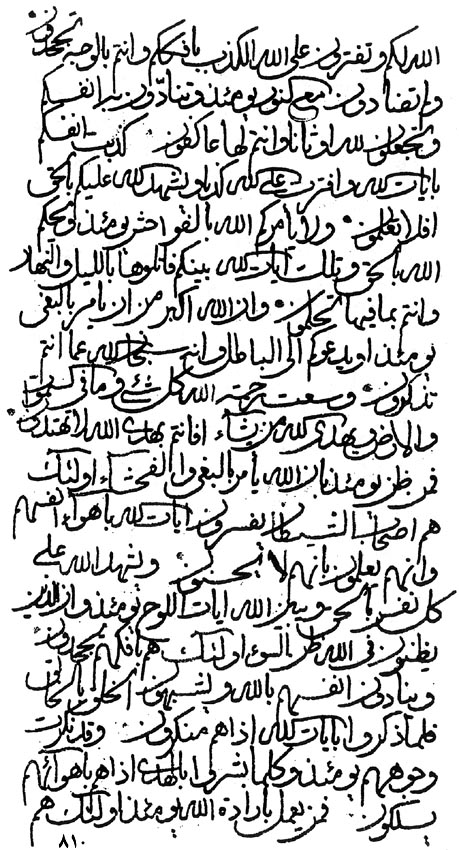 الله لكم وتفترون على الله الكذب بافككم وانتم بالوجه تجحدون
ولم تضادون مع كنور يومئذ وتنادون الى انفسكم
وتجعلون لله اوثانا وانتم لها عاكفون كذبت انفسكم
بايات الله وافترت على الله كذبا ويشهد الله عليكم بالحق
افلا تعلمون ولا يأمركم الله بالفواحش يومئذ ويحكم
الله بالحق وتلك ايات الله بينكم فاتلوها بالليل والنهار
وانتم بما فيها تحكمون وان الله اكبر من ان يأمر بالبغى
يومئذ او يدعوكم الى الباطل وانتم سبحان الله عما انتم
تذكرون وسعت رحمة الله كل شئ وما فى السموات
والارض يهدى الله من يشاء افانتم بهدى الله لا تهتدون
فمن ظن يومئذ بان الله يأمر بالبغى والفحشاء اولئك
هم اصحاب الشيطان يفسرون ايات الله باهواء انفسهم
وانهم يعلمون بانهم لا يحسنون ويشهد الله على
كل نفس بالحق وبين الله ايات اللوح يومئذ وان الذين
يظنون فى الله ظن السوء اولئك هم بافكهم يجحدون
وينادون انفسهم بالله ويشبهون الخلق بالخالق
فلما ذكروا بايات الله اذا هم منكرون وقد نكرت
وجوههم يومئذ وكلما بشروا بالهدى اذا هم باهوائهم
يسلكون فمن يعمل بارادة الله يومئذ اولئك هم
٨١٠